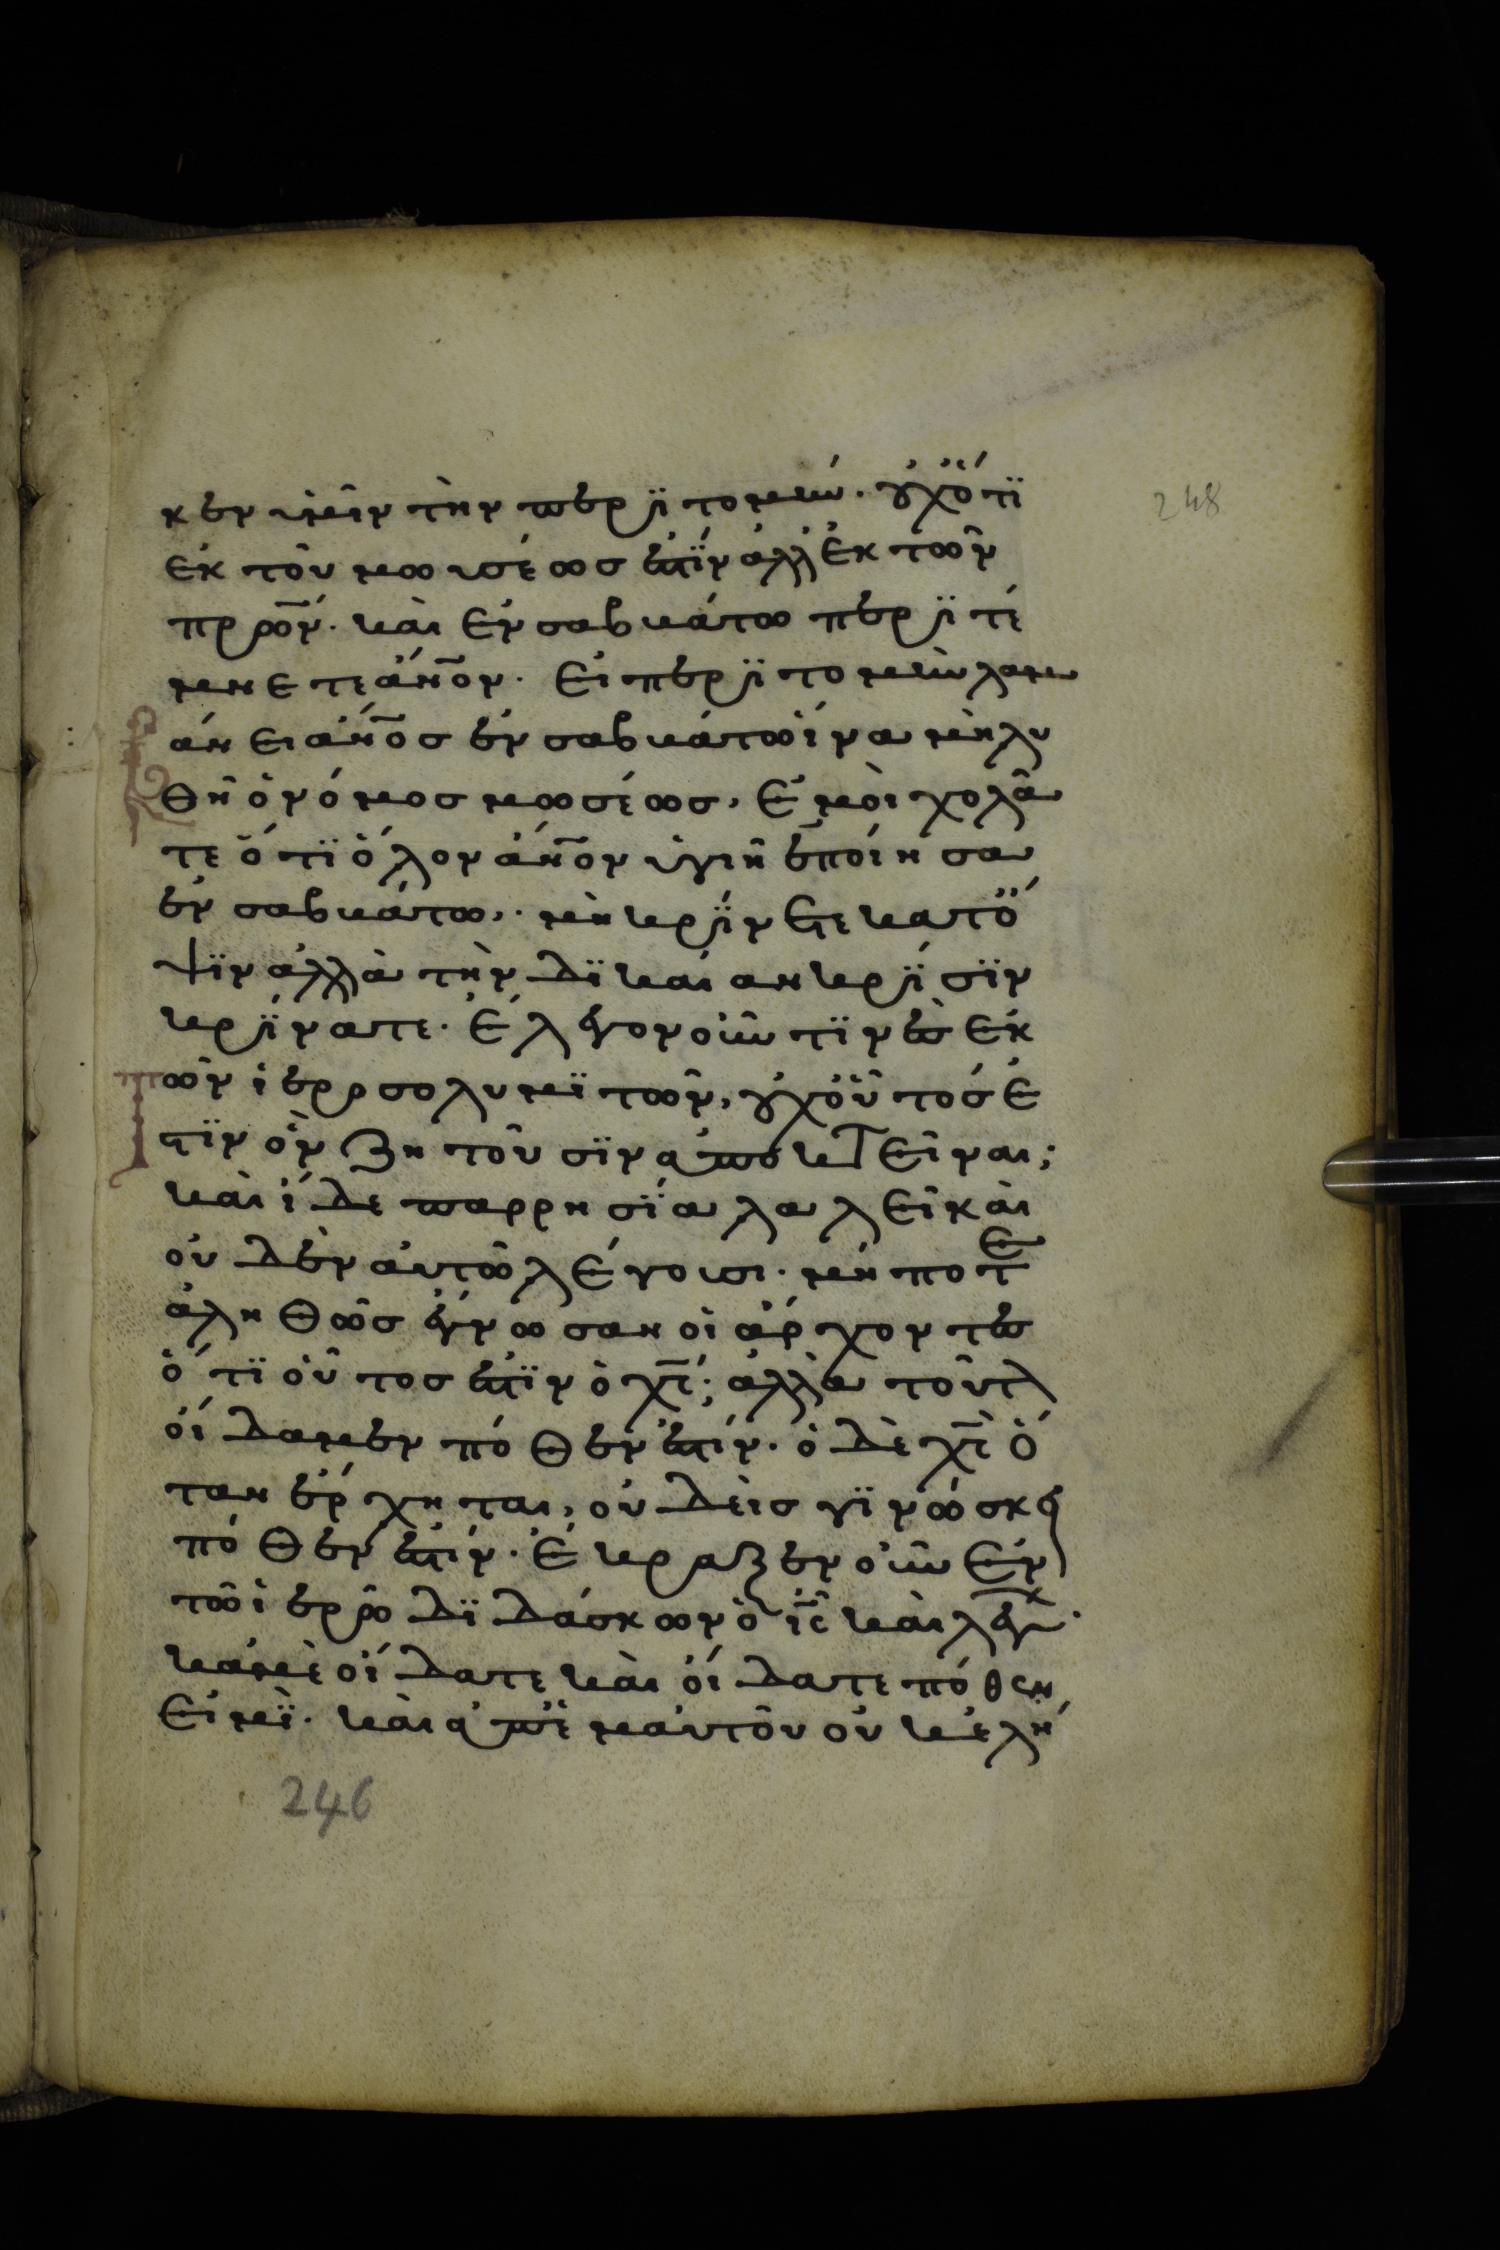 κεν ὑμῖν τὴν περιτομήν. οὐχ ὅτι
ἐκ τοῦ μωυσέως ἐστὶν ἀλλ ἐκ τῶν
πρων. καὶ ἐν σαββάτω περιτέ
μνετε ἄνον. εἰ περιτομὴν λαμ
βάνει ἄνος ἐν σαββάτω ἵνα μὴ λυ
θῆ ὁ νόμος μωσέως, ἐμοὶ χολᾶ
τε ὅτι ὅλον ἄνον ὑγιῆ ἐποίησα
ἐν σαββάτω. μὴ κρίνετε κατ ὄ
ψιν ἀλλὰ τὴν δικαίαν κρίσιν
κρίνατε. ἔλεγον οὖν τινὲς ἐκ
τῶν ἱεροσολυμιτῶν, οὐχ οὗτός ἐ
στιν ὃν ζητοῦσιν ἀποκτεῖναι;
καὶ ἴδε παρρησία λαλεῖ καὶ
οὐδὲν αὐτῶ λέγουσι. μήποτε
ἀληθῶς ἔγνωσαν οἱ ἄρχοντες
ὅτι οὗτος ἐστὶν ὁ χς; ἀλλὰ τοῦτ
οἴδαμεν πόθεν ἐστίν. ὁ δὲ χς ὅ
ταν ἔρχηται, οὐδεὶς γινώσκει
πόθεν ἐστίν. ἔκραξεν οὖν ἐν
τῶ ἱερῶ διδάσκων ὁ ις καὶ λέγων.
κἀμὲ οἴδατε καὶ οἴδατε πόθεν
εἰμί. καὶ ἀπ ἐμαυτοῦ οὐκ ἐλή
246
248